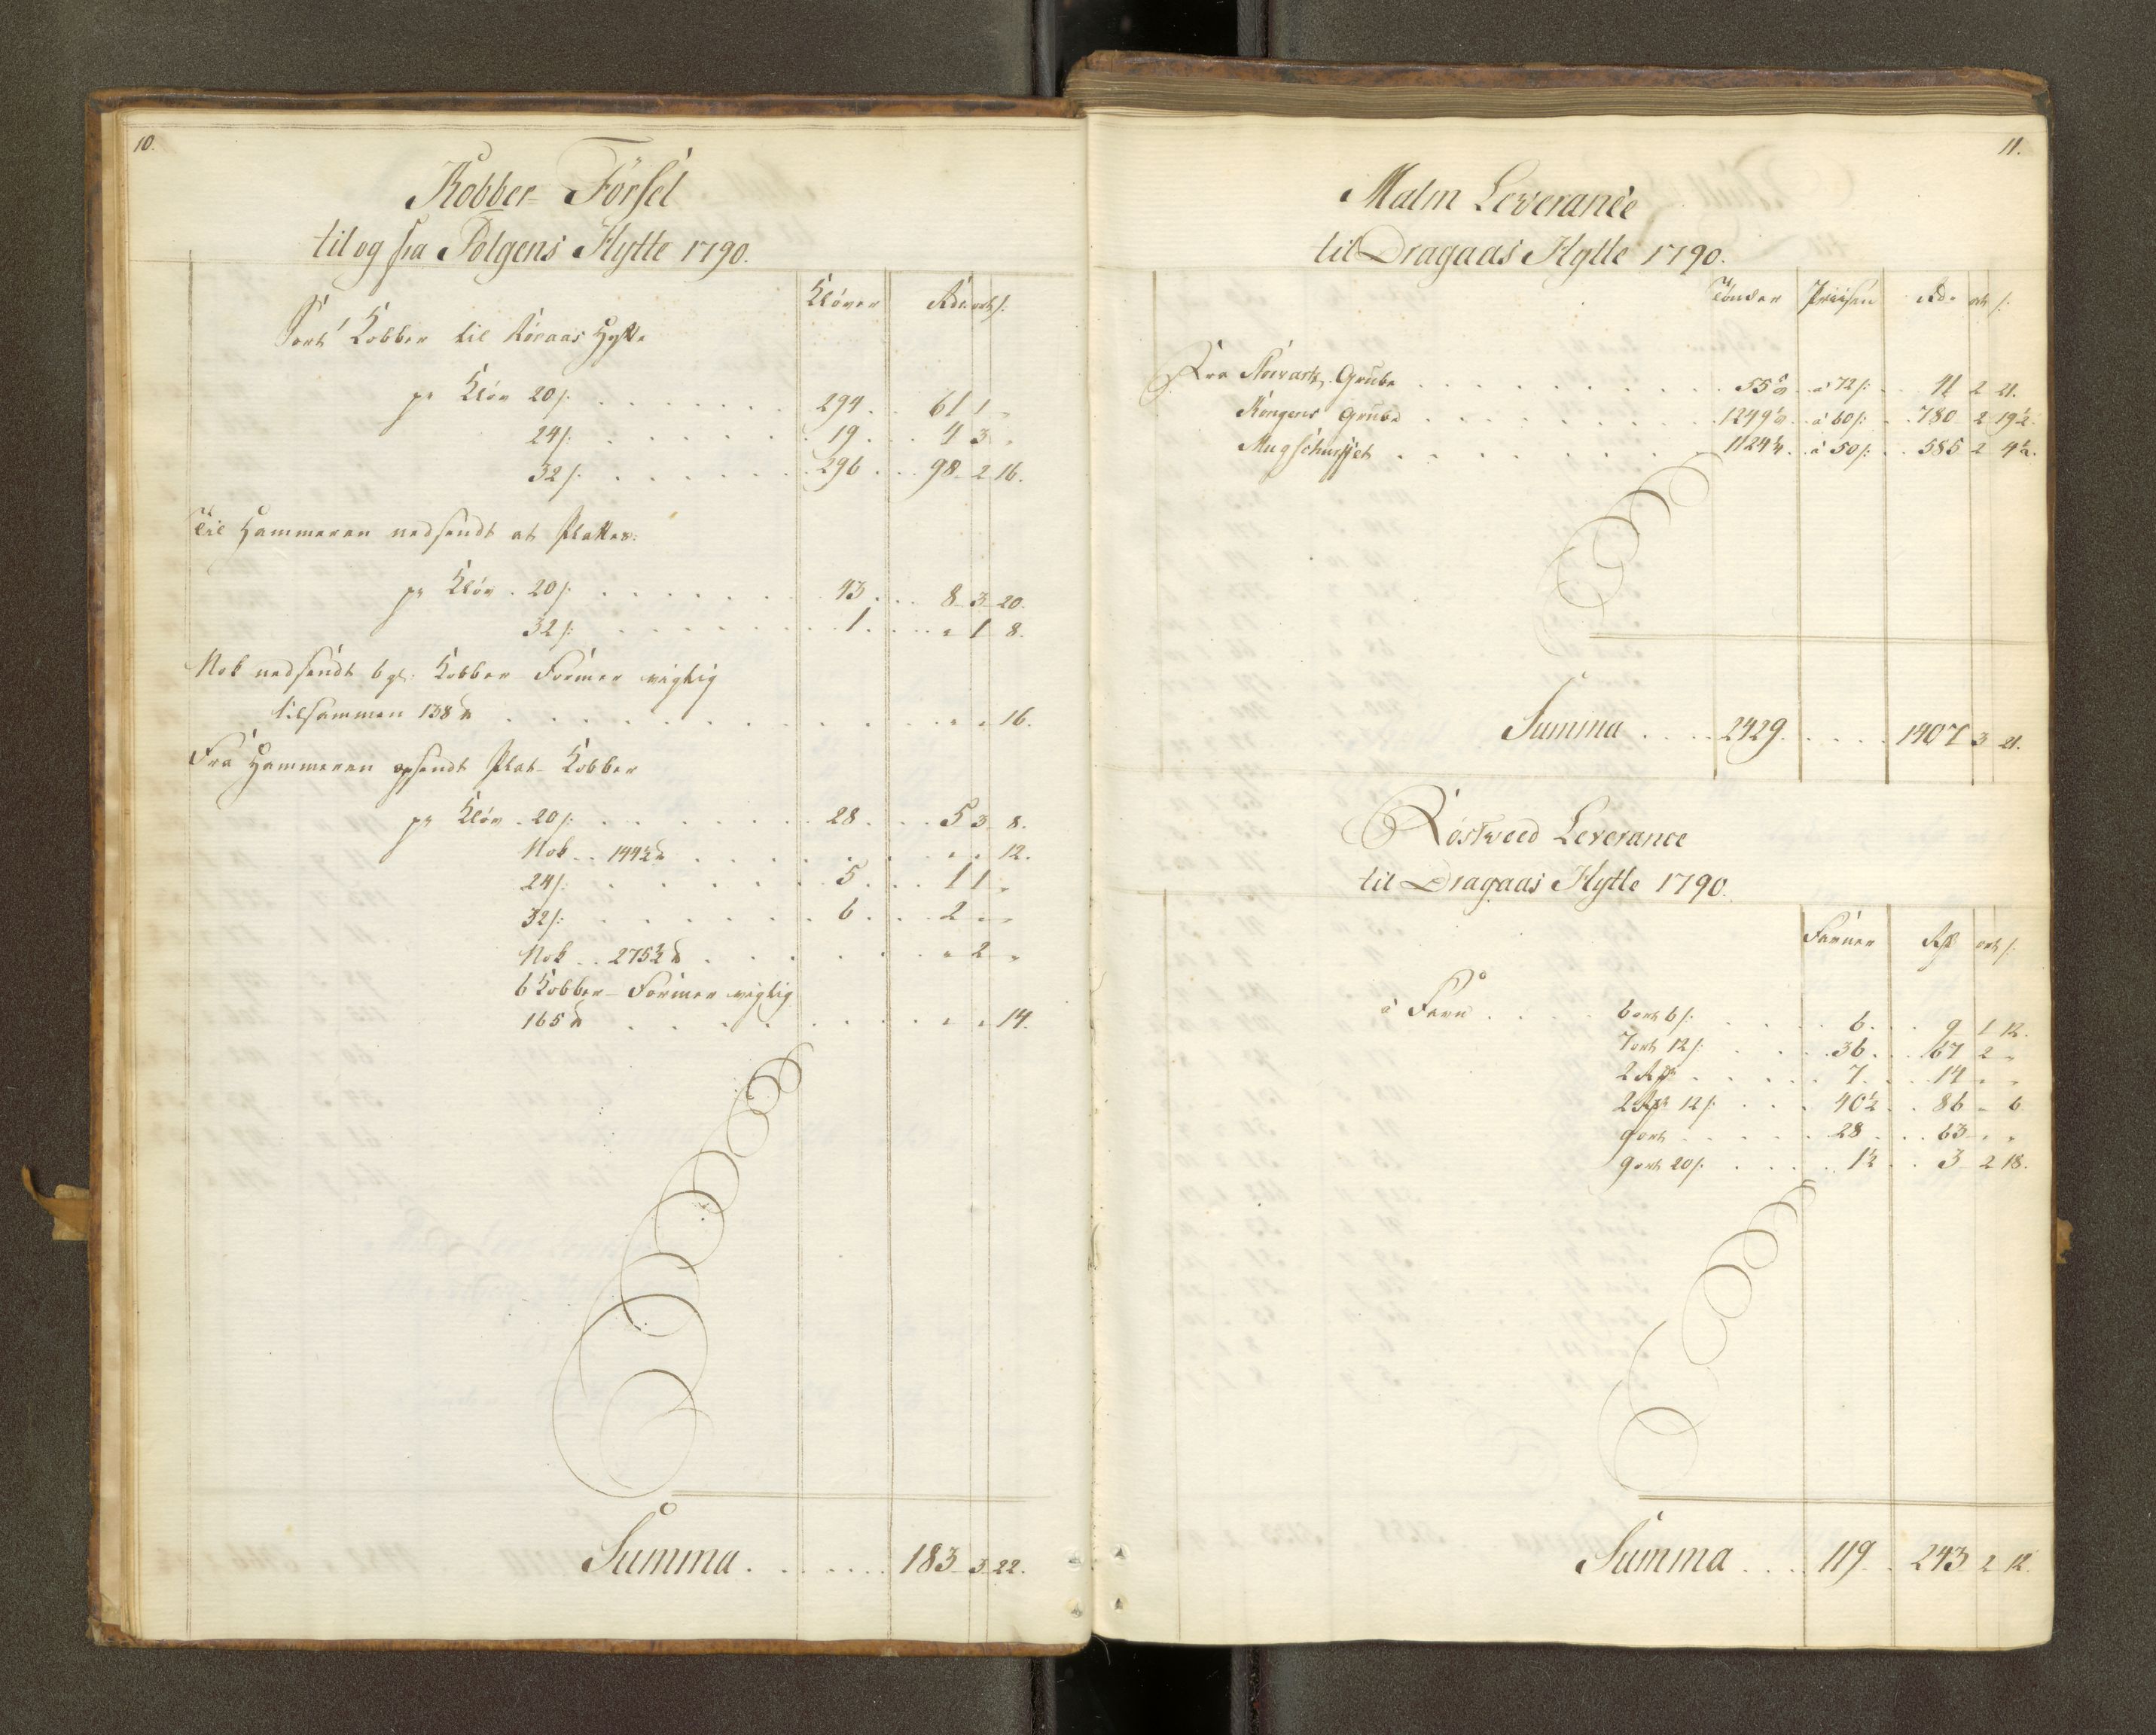 10.
Kobber-Försel
til og fra Tolgens Hytte 1790.
Kløver Rdr. ort s:
Sort Kobber til Røraas Hytte
pr Kløv 20 s: 294. 61 1 „
24 s: 19. 4 3 „
32 s: 296. 98 2 16.
Til Hammeren nedsendt at Plattes:
pr Kløv. 20 s: 43. 8 3 20.
32 s: 1. „ 1 8.
Nok nedsendt 6 gl: Kobber Former vigtig
tilsammen 138 ℔ „ „ 16.
Fra Hammeren opsendt Plat-Kobber
pr Kløv. 20 s: 28. 5 3 8.
Nok .. 144½ ℔ „ „ 12.
24 s: 5. 1 1 „
32 s: 6. 2 „ „
Nok .. 275½ ℔ „ 2 „
6 Kobber-Former vigtig
165 ℔ „ „ 14.
Summa 183 3 22.
11.
Malm Leverance
til Dragaas Hytte 1790.
Tønder Priisen Rd. ort s:
Fra Grube 55 à 72 s: 41 2 21.
Kongens Grube 1249 à 60 s: 780 2 19½.
Mugschurfset 1124¼. à 50 s: 585 2 4½.
Summa 2429. 1407 3 21.
Röstweed Leverance
til Dragaas Hytte 1790.
Favner Rd ort s:
à Favn 6 ort 6 s: 6. 9 1 12.
7 ort 12 s: 36. 67 2 „
2 Rdr 7. 14 „ „
2 Rdr 12 s: 40½ 86 „ 6
9 ort 28 63 „ „
9 ort 20 s: 1½ 3 2 18.
Summa 119. 243 2 12.